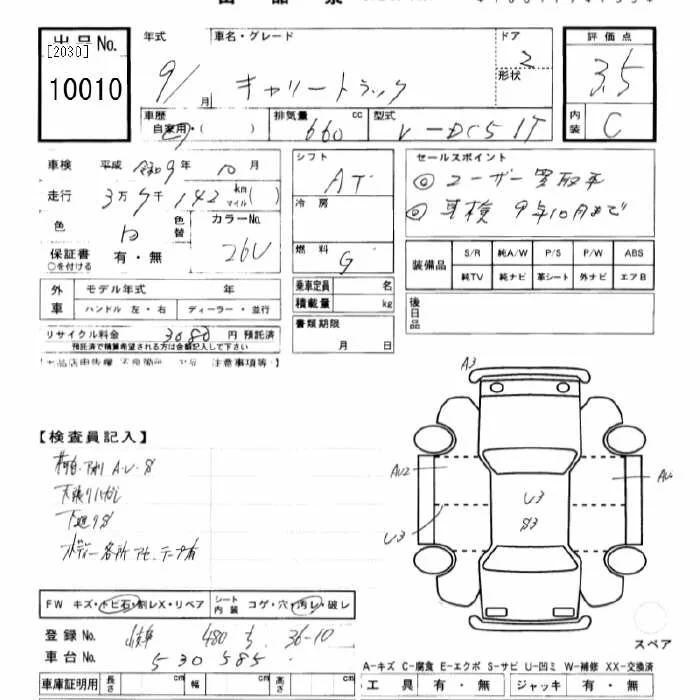 出品No.
[2030]
10010
年式
9/
月
車名・グレード
キャリートラック
ドア
2
形状
評価点
3.5
内装
C
車歴
自家用・( )
排気量 cc
660
型式
V-DC51T
車検 平成 令和9年 10月
走行 3万7千142 km マイル( )
色
白
色替
カラーNo.
26U
保証書 有・無
○を付ける
シフト
AT
冷房
燃料
G
セールスポイント
◎ユーザー買取車
◎車検 9年10月まで
装備品
S/R 純A/W P/S P/W ABS
純TV 純ナビ 革シート 外ナビ エアB
外車
モデル年式 年
ハンドル 左・右 ディーラー・並行
乗車定員 名
積載量 kg
後日品
リサイクル料金 3080 円 預託済
預託済で精算希望される方は金額記入して下さい
書類期限
月 日
注意事項等
A3
【検査員記入】
A・U・S
AU2
U3
S3
U3
FW キズ・トビ石・割レX・リペア
シート内装 コゲ・穴・汚レ・破レ
登録No. 480 36-10
車台No. 530585
スペア
車庫証明用 長さ 幅 高さ
A-キズ C-腐食 E-エクボ S-サビ U-凹ミ W-補修 XX-交換済
工具 有・無 ジャッキ 有・無